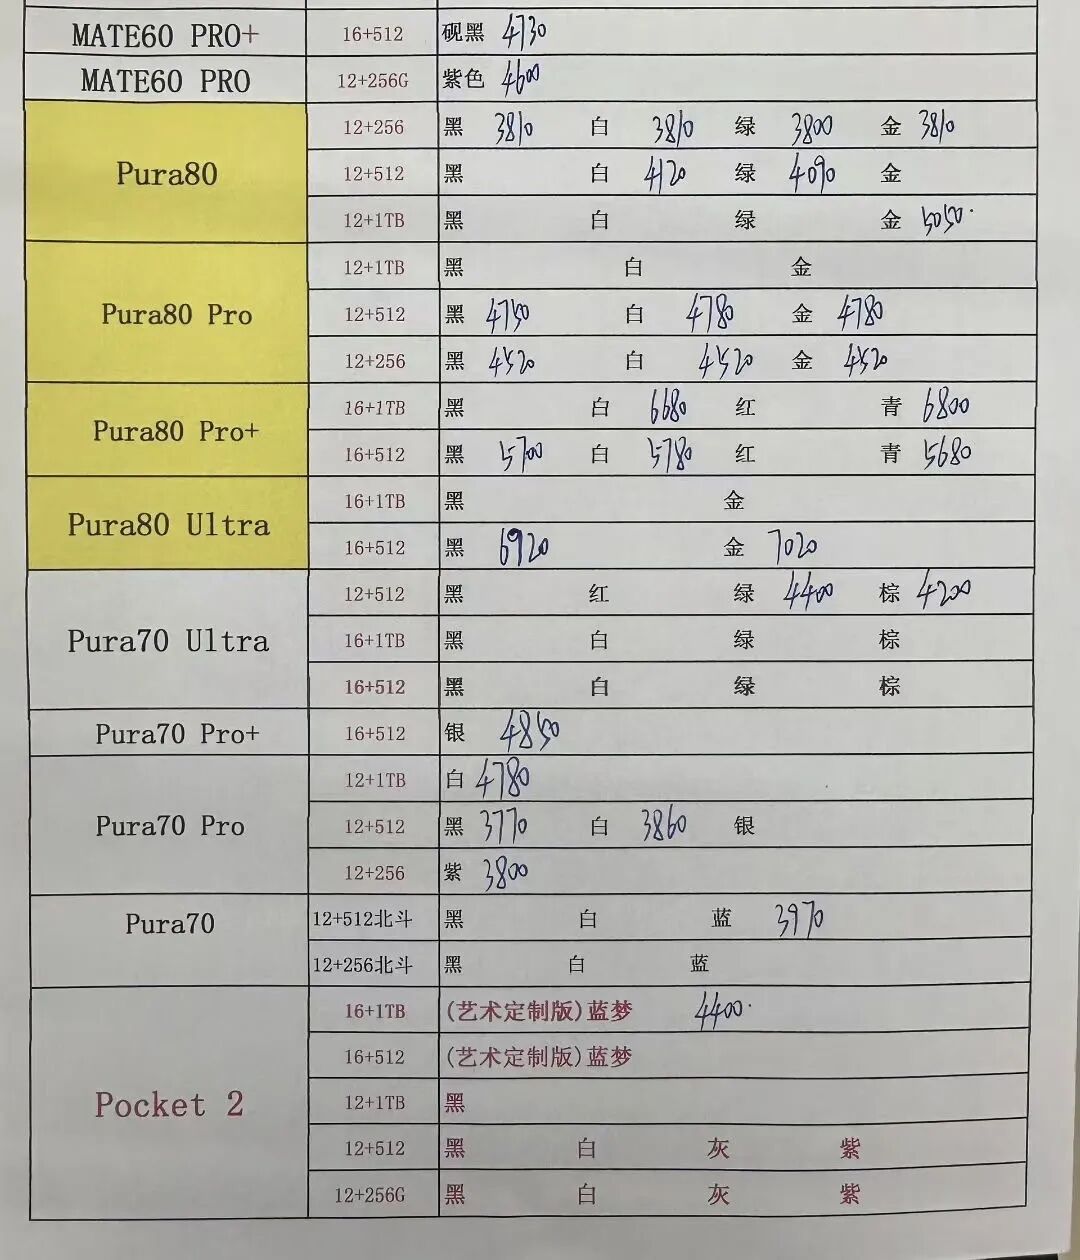 MATE60 PRO+ 16+512 砚黑 4730
MATE60 PRO 12+256G 紫色 4600
Pura80
12+256 黑 3810 白 3810 绿 3800 金 3810
12+512 黑 白 4120 绿 4090 金
12+1TB 黑 白 绿 金 5050
Pura80 Pro
12+1TB 黑 白 金
12+512 黑 4750 白 4780 金 4780
12+256 黑 4520 白 4520 金 4520
Pura80 Pro+
16+1TB 黑 白 6680 红 青 6800
16+512 黑 5700 白 5780 红 青 5680
Pura80 Ultra
16+1TB 黑 金
16+512 黑 6920 金 7020
Pura70 Ultra
12+512 黑 红 绿 4400 棕 4200
16+1TB 黑 白 绿 棕
16+512 黑 白 绿 棕
Pura70 Pro+ 16+512 银 4850
Pura70 Pro
12+1TB 白 4780
12+512 黑 3770 白 3860 银
12+256 紫 3800
Pura70
12+512北斗 黑 白 蓝 3970
12+256北斗 黑 白 蓝
Pocket 2
16+1TB (艺术定制版)蓝梦 4400
16+512 (艺术定制版)蓝梦
12+1TB 黑
12+512 黑 白 灰 紫
12+256G 黑 白 灰 紫